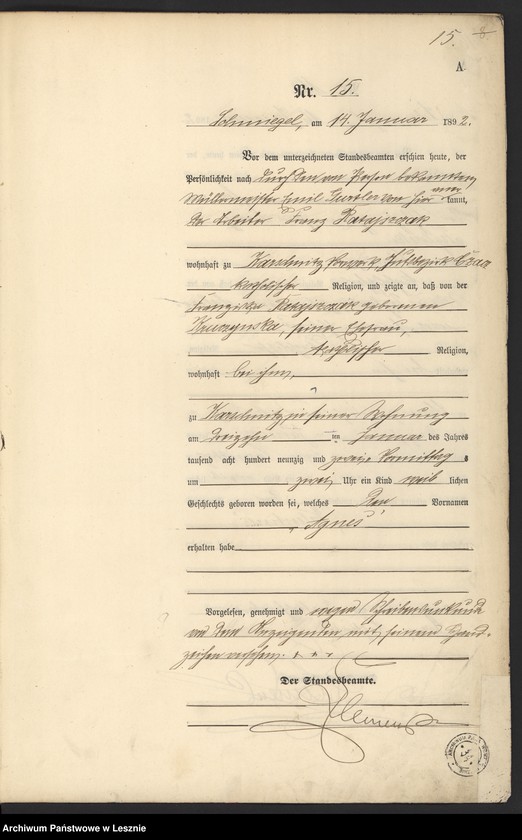 15.
A.
Nr. 15.
Schmiegel, am 14. Januar 1892.
Vor dem unterzeichneten Standesbeamten erschien heute, der
Persönlichkeit nach durch den von Person bekannten
Müllermeister Emil von hier anerkannt,
der Arbeiter Franz Ratajczak
wohnhaft zu Karschnitz Vorwerk, Gutsbezirk
katholischer Religion, und zeigte an, daß von der
Franziska Ratajczak geborenen
seiner Ehefrau,
katholischer Religion,
wohnhaft bei ihm,
zu Karschnitz in seiner Wohnung
am dreizehn ten Januar des Jahres
tausend acht hundert neunzig und zwei, Vormittag s
um zwei Uhr ein Kind weib lichen
Geschlechts geboren worden sei, welches den Vornamen
"Agnes"
erhalten habe
Vorgelesen, genehmigt und wegen Schreibensunkunde
von dem Anzeigenden mit seinem Hand-
zeichen versehen. + + +
Der Standesbeamte.
Archiwum Państwowe w Lesznie